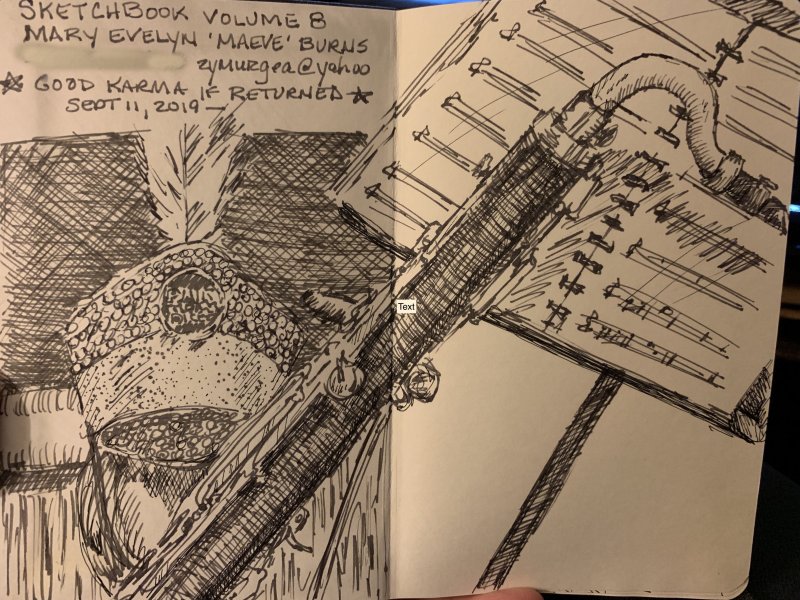 SKETCHBOOK VOLUME 8
MARY EVELYN 'MAEVE' BURNS
zymurgea@yahoo
☆ GOOD KARMA IF RETURNED ☆
SEPT 11, 2019 –
Text